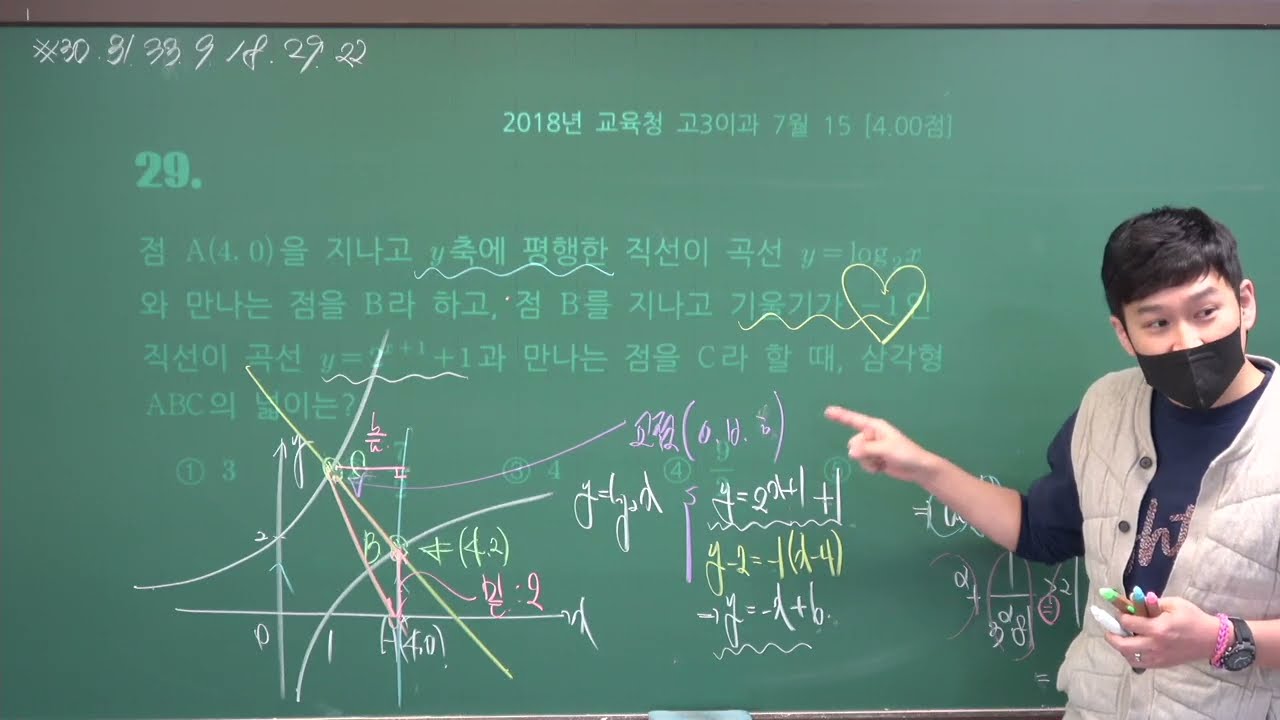 ※30. 31. 33. 9. 18. 29. 22
2018년 교육청 고3이과 7월 15 [4.00점]
29.
점 A(4, 0)을 지나고 y축에 평행한 직선이 곡선 y=log₂x
와 만나는 점을 B라 하고, 점 B를 지나고 기울기가 -1인
직선이 곡선 y=2ˣ⁺¹+1과 만나는 점을 C라 할 때, 삼각형
ABC의 넓이는?
① 3
7
③ 4
④ 9
y
교점(
y=log₂x
y=2ˣ⁺¹+1
2
B
(4,2)
y-2=-1(x-4)
: 2
⇒ y=-x+6.
0
1
(4,0)
x